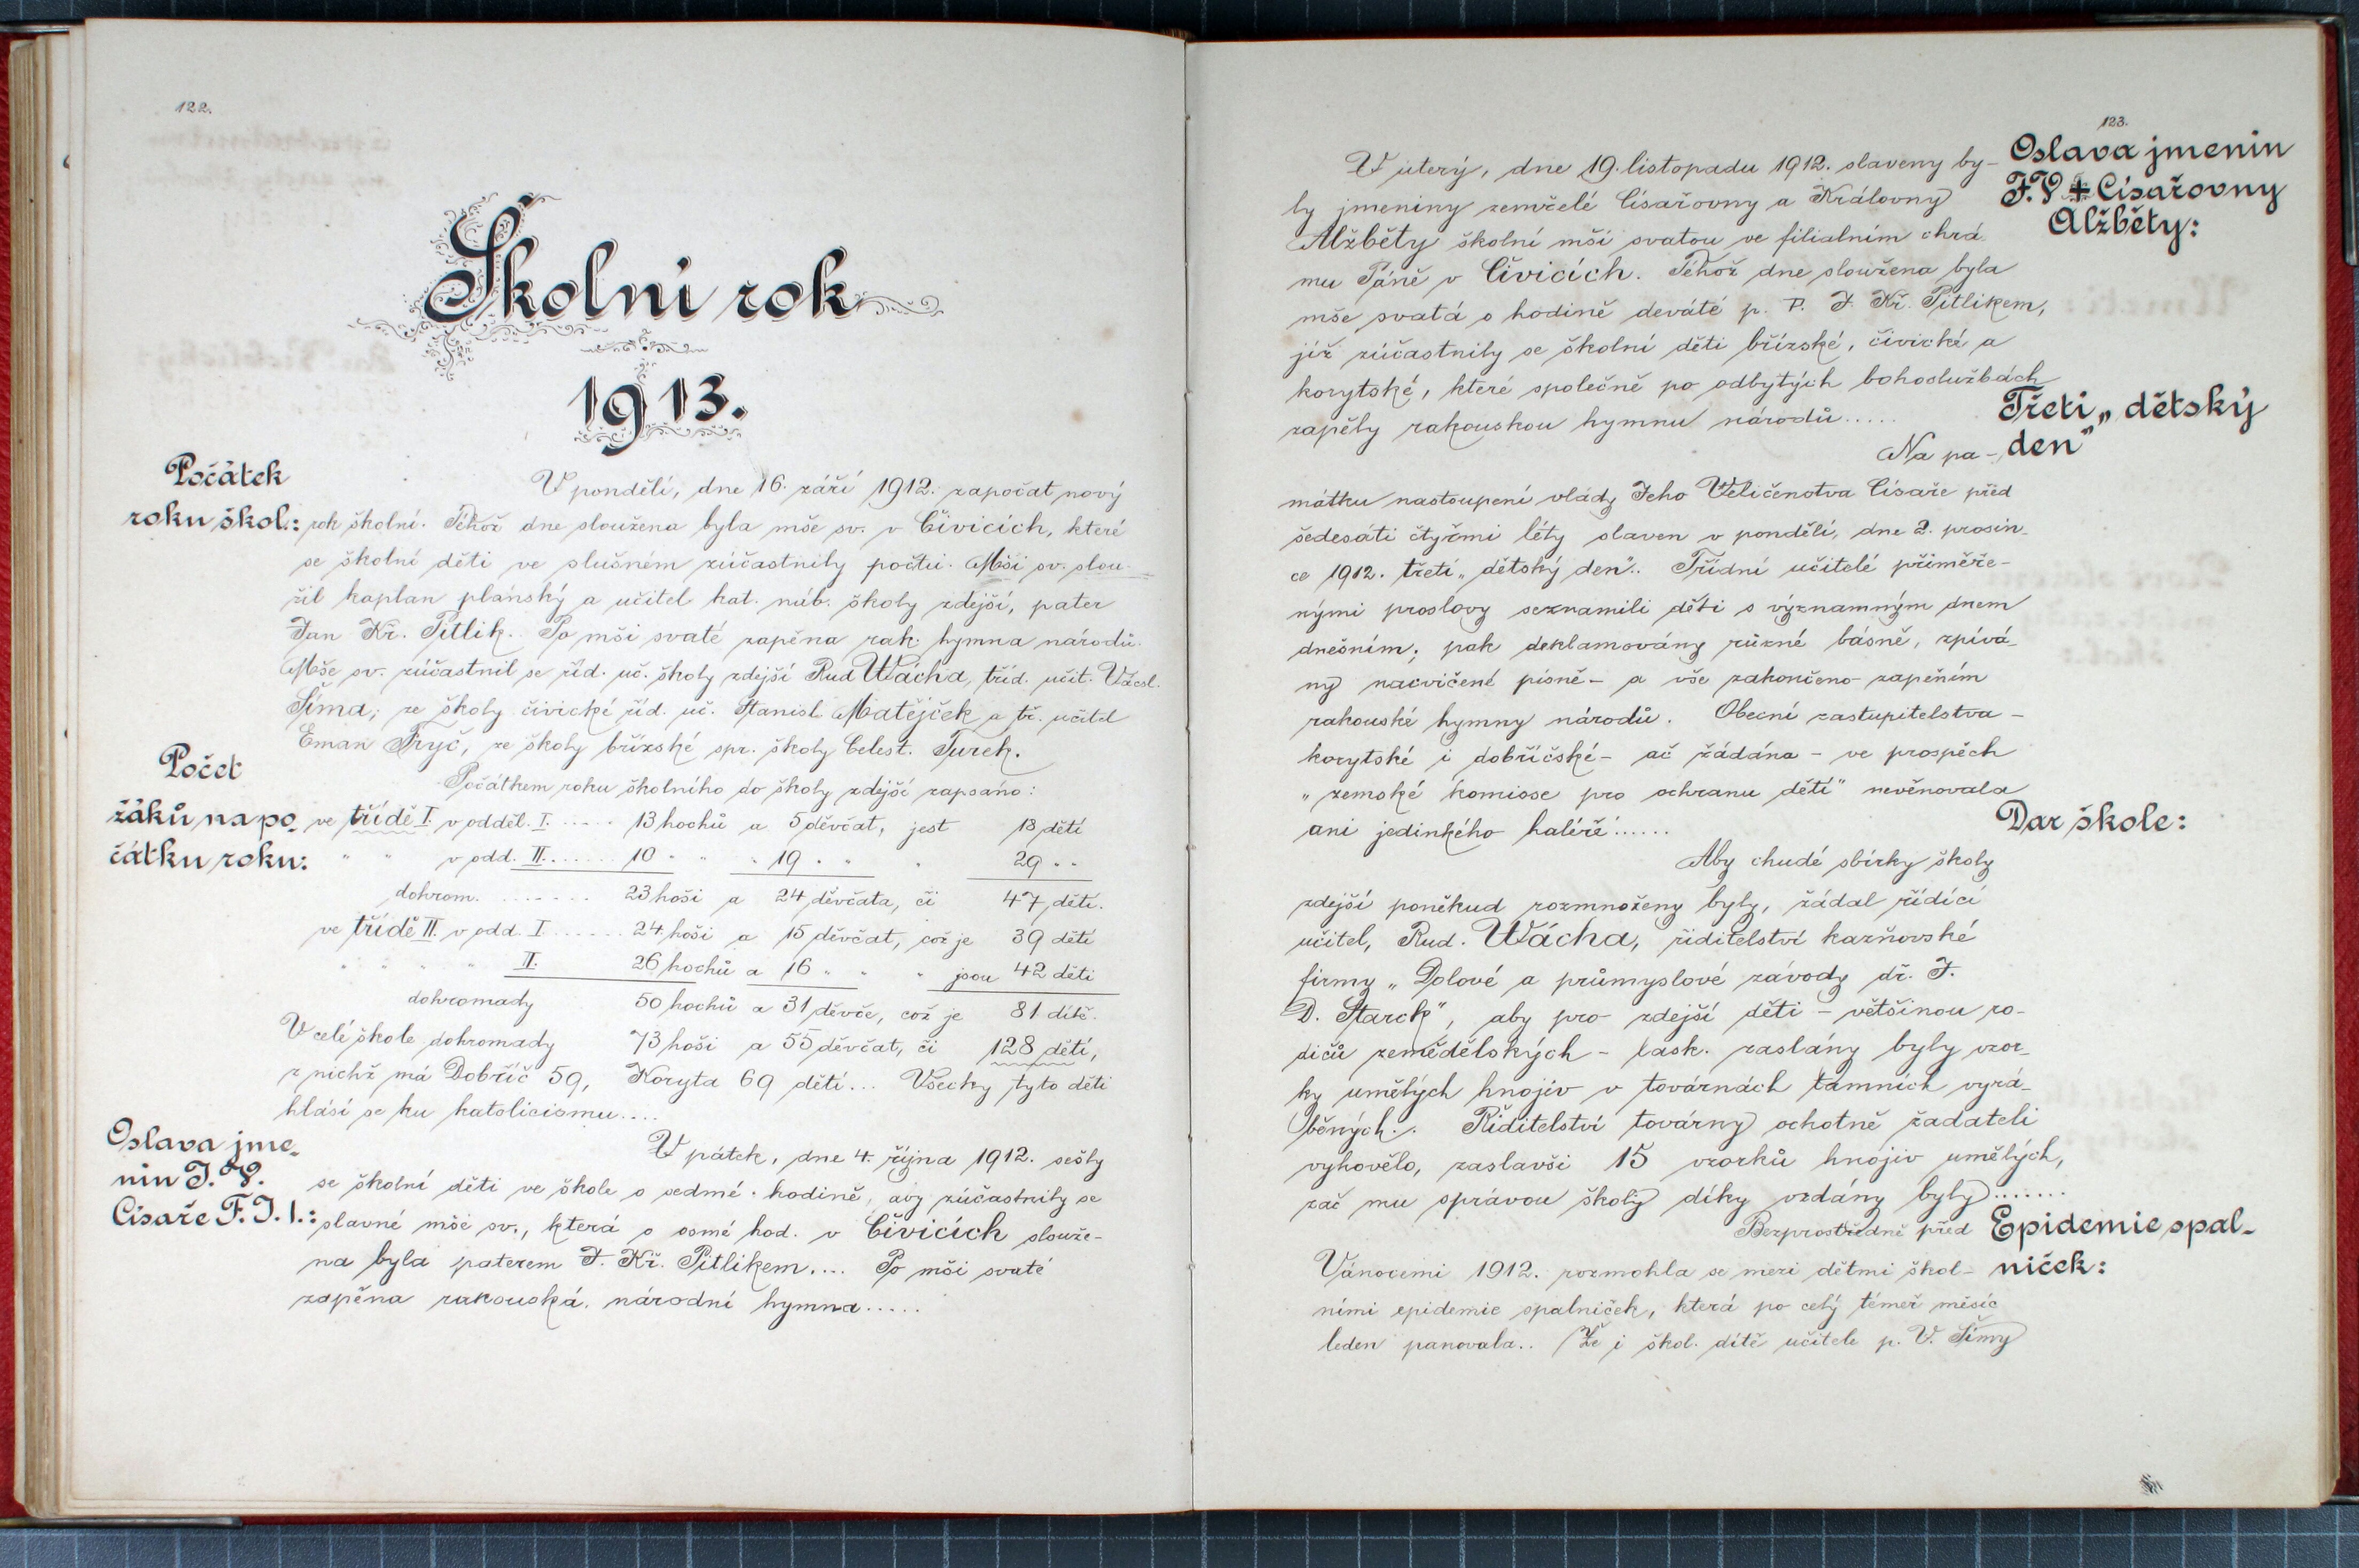 122.
Školní rok
1913.
Počátek
roku škol.:
V pondělí, dne 16. září 1912. započat nový
rok školní. Téhož dne sloužena byla mše sv. v Čivicích, které
se školní děti ve slušném zúčastnily počtu. Mši sv. slou-
žil kaplan plánský a učitel kat. náb. školy zdejší, pater
Jan Kř. Pitlik. Po mši svaté zapěna rak. hymna národů.
Mše sv. zúčastnil se říd. uč. školy zdejší Rud Wácha, tříd. učit. Vácsl.
Šíma; ze školy čivické říd. uč. Stanisl. Matějček a tř. učitel
Eman Fryč, ze školy břízské spr. školy Celest. Turek.
Počet
žáků na po-
čátku roku:
Počátkem roku školního do školy zdejší zapsáno:
ve třídě I. v odděl. I. ..... 13 hochů a 5 děvčat, jest 18 dětí
" " v odd. II. ..... 10 " " 19 " " " 29 " "
dohrom. ........ 23 hoši a 24 děvčata, či 47 dětí.
ve třídě II. v odd. I ...... 24 hoši a 15 děvčat, což je 39 dětí
" " " " II. 26 hochů a 16 " " " jsou 42 děti
dohromady 50 hochů a 31 děvče, což je 81 dítě.
V celé škole dohromady 73 hoši a 55 děvčat, či 128 dětí,
z nichž má Dobříč 59, Koryta 69 dětí... Všecky tyto děti
hlásí se ku katolicismu....
Oslava jme-
nin J. V.
Císaře F. J. I.:
V pátek, dne 4. října 1912. sešly
se školní děti ve škole o sedmé hodině, aby zúčastnily se
slavné mše sv., která o osmé hod. v Čivicích slouže-
na byla paterem J. Kř. Pitlikem.... Po mši svaté
zapěna rakouská národní hymna.....
123.
Oslava jmenin
J. V. + Císařovny
Alžběty:
V úterý, dne 19. listopadu 1912. slaveny by-
ly jmeniny zemřelé Císařovny a Královny
Alžběty školní mší svatou ve filialním chrá-
mu Páně v Čivicích. Téhož dne sloužena byla
mše svatá o hodině deváté p. P. J. Kř. Pitlikem,
jíž zúčastnily se školní děti břízské, čivické a
korytské, které společně po odbytých bohoslužbách
zapěly rakouskou hymnu národů.....
Třetí „dětský
den"
Na pa-
mátku nastoupení vlády Jeho Veličenstva Císaře před
šedesáti čtyřmi léty slaven v pondělí, dne 2. prosin-
ce 1912. třetí „dětský den". Třídní učitelé přiměře-
nými proslovy seznamili děti s významným dnem
dnešním; pak deklamovány různé básně, zpívá-
ny nacvičené písně - a vše zakončeno zapěním
rakouské hymny národů. Obecní zastupitelstva -
korytské i dobříčské - ač žádána - ve prospěch
„zemské komisse pro ochranu dětí" nevěnovala
ani jedinkého haléře!......
Dar škole:
Aby chudé sbírky školy
zdejší poněkud rozmnoženy byly, žádal řídící
učitel, Rud. Wácha, řiditelství kazňovské
firmy „Dolové a průmyslové závody dř. J.
D. Starck", aby pro zdejší děti - většinou ro-
dičů zemědělských - lask. zaslány byly vzor-
ky umělých hnojiv v továrnách tamních vyrá-
běných.. Řiditelství továrny ochotně žadateli
vyhovělo, zaslavši 15 vzorků hnojiv umělých,
zač mu správou školy díky vzdány byly.......
Epidemie spal-
niček:
Bezprostředně před
Vánocemi 1912. rozmohla se mezi dětmi škol-
ními epidemie spalniček, která po celý téměř měsíc
leden panovala.. (Že i škol. dítě učitele p. V. Šímy